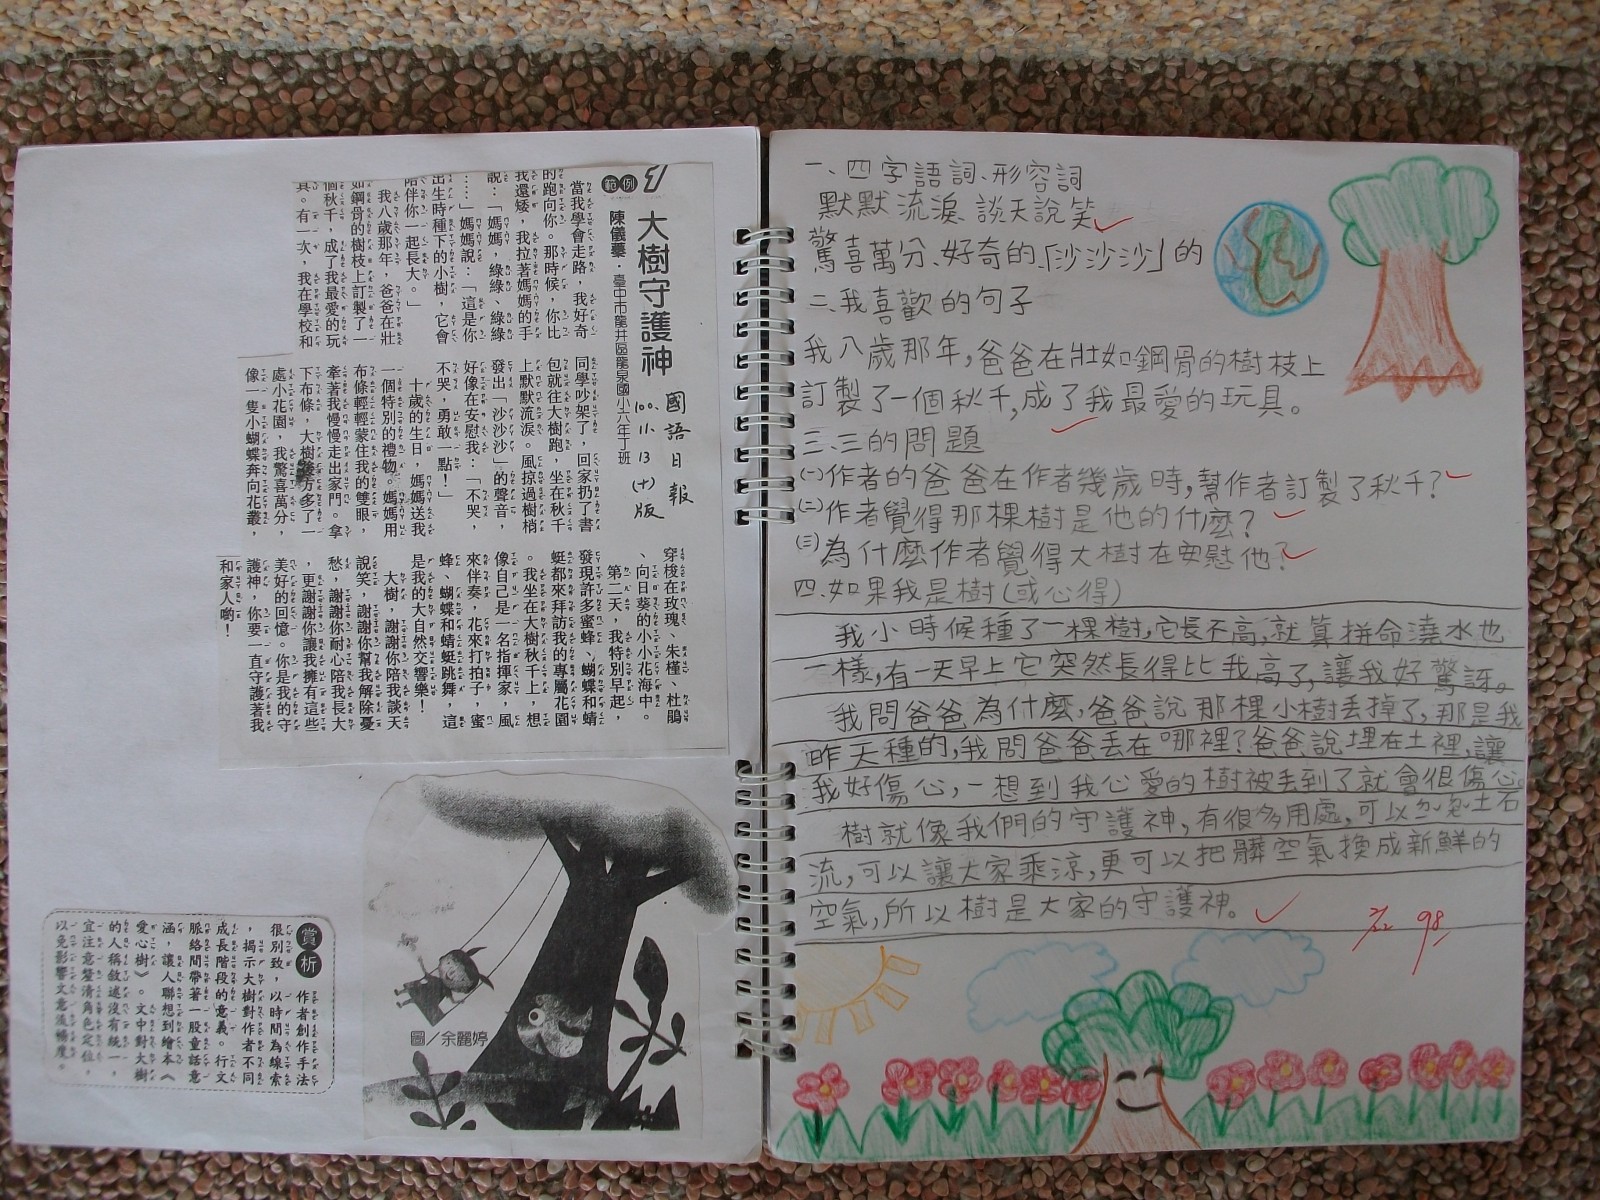 範例
1
大樹守護神
國語日報
100.11.13(十)版
陳儀蓁．臺中市龍井區龍泉國小六年丁班
當我學會走路，我好奇
的跑向你。那時候，你比
我還矮，我拉著媽媽的手
說：「媽媽，綠綠、綠綠
……」媽媽說：「這是你
出生時種下的小樹，它會
陪伴你一起長大。」
我八歲那年，爸爸在壯
如鋼骨的樹枝上訂製了一
個秋千，成了我最愛的玩
具。有一次，我在學校和
同學吵架了，回家扔了書
包就往大樹跑，坐在秋千
上默默流淚。風掠過樹梢
發出「沙沙沙」的聲音，
好像在安慰我：「不哭，
不哭，勇敢一點！」
十歲的生日，媽媽送我
一個特別的禮物。媽媽用
布條輕輕蒙住我的雙眼，
牽著我慢慢走出家門。拿
下布條，大樹後方多了一
處小花園，我驚喜萬分，
像一隻小蝴蝶奔向花叢，
穿梭在玫瑰、朱槿、杜鵑
、向日葵的小小花海中。
第二天，我特別早起，
發現許多蜜蜂、蝴蝶和蜻
蜓都來拜訪我的專屬花園
。我坐在大樹秋千上，想
像自己是一名指揮家，風
來伴奏，花來打拍子，蜜
蜂、蝴蝶和蜻蜓跳舞，這
是我的大自然交響樂！
大樹，謝謝你陪我談天
說笑，謝謝你幫我解除憂
愁，謝謝你耐心陪我長大
，更謝謝你讓我擁有這些
美好的回憶。你是我的守
護神，你要一直守護著我
和家人喲！
圖／余麗婷
賞析
作者創作手法
很別致，以時間為線索
，揭示大樹對作者不同
成長階段的意義。行文
脈絡間帶著一股童話意
涵，讓人聯想到繪本《
愛心樹》。文中對大樹
的人稱敘述沒有統一，
宜注意釐清角色定位，
以免影響文意流暢度。
一、四字語詞、形容詞
默默流淚、談天說笑
驚喜萬分、好奇的、「沙沙沙」的
二、我喜歡的句子
我八歲那年，爸爸在壯如鋼骨的樹枝上
訂製了一個秋千，成了我最愛的玩具。
三、三的問題
(一)作者的爸爸在作者幾歲時，幫作者訂製了秋千？
(二)作者覺得那棵樹是他的什麼？
(三)為什麼作者覺得大樹在安慰他？
四、如果我是樹(或心得)
我小時候種了一棵樹，它長不高，就算拼命澆水也
一樣，有一天早上它突然長得比我高了，讓我好驚訝。
我問爸爸為什麼，爸爸說那棵小樹丟掉了，那是我
昨天種的，我問爸爸丟在哪裡？爸爸說埋在土裡，讓
我好傷心，一想到我心愛的樹被丟到了就會很傷心。
樹就像我們的守護神，有很多用處，可以ㄉㄤˇ土石
流，可以讓大家乘涼，更可以把髒空氣換成新鮮的
空氣，所以樹是大家的守護神。
98